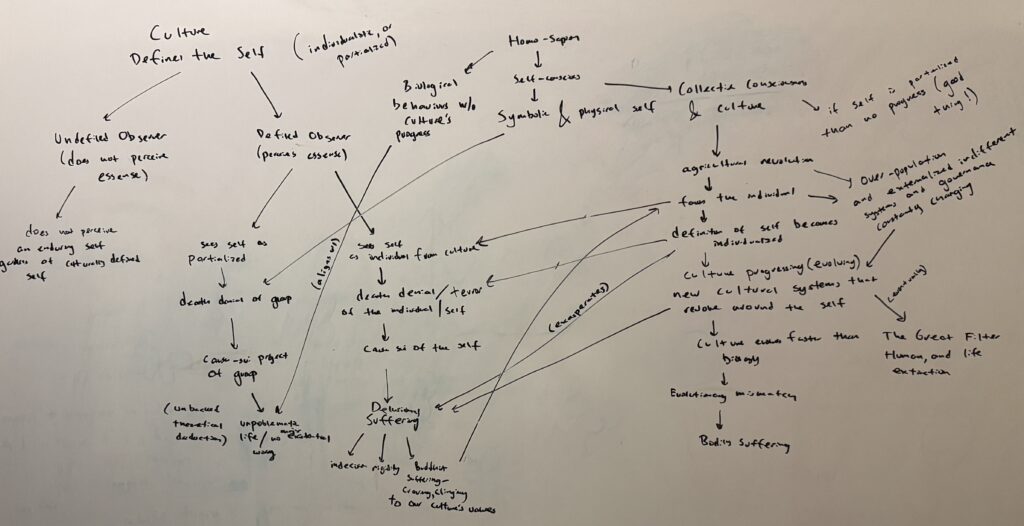 Culture
Defines the Self
(individualistic, or
partialized)
Undefined Observer
(does not perceive
essense)
does not perceive
an enduring self
of culturally defined
self
Defined Observer
(perceives essense)
sees self as
partialized
death denial of group
Causa-sui project
of group
(unbacked
theoretical
deduction)
unproblematic
life/no existential
sees self
as individual from culture
death denial/terror
of the individual/self
Causa sui of the self
Delusions
Suffering
indecision rigidity Buddhist
Suffering-
Craving, Clinging
to our culture's values
(aligns w/)
(exasperates)
Homo-Sapien
Biological
behaviors w/o
culture's
progress
Self-conscious
Symbolic & physical self
Collective Consciousness
& culture
if self is partialized
than no progress (good
thing!)
agricultural revolution
favors the individual
definition of self becomes
individualized
Over-population
and externalized indifferent
systems and governance
constantly changing
Culture progressing (evolving)
new cultural systems that
revolve around the self
(eventually)
The Great Filter
Human, and life
extinction
Culture evolves faster than
biology
Evolutionary mismatch
Bodily Suffering